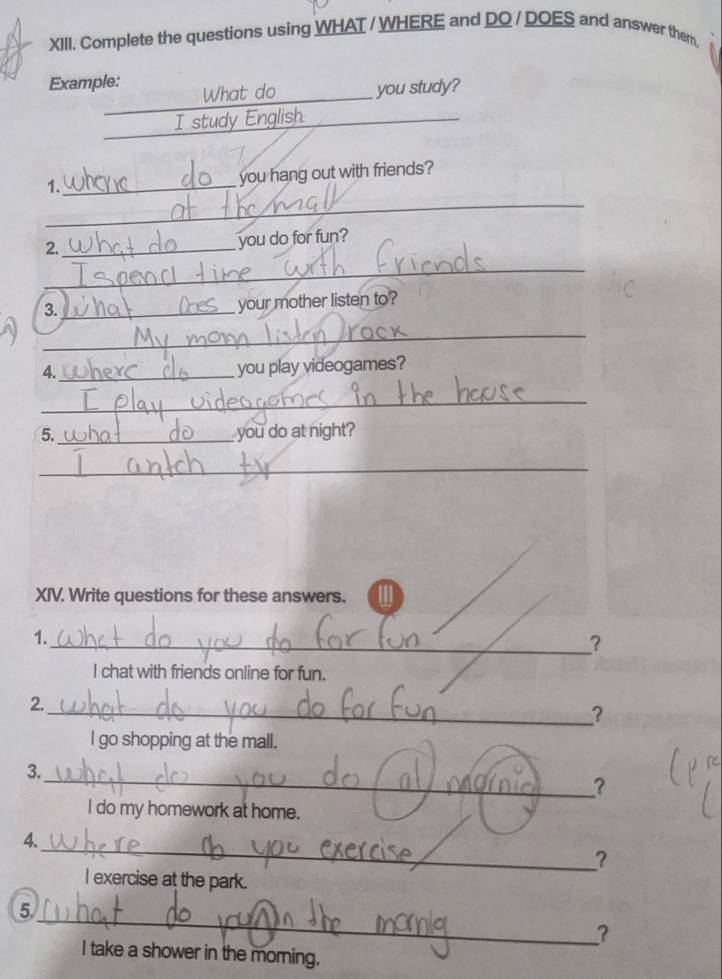 XIII. Complete the questions using WHAT / WHERE and DO / DOES and answer them.
Example:
What do you study?
I study English.
1. Where do you hang out with friends?
at the mall
2. What do you do for fun?
I spend time with friends
3. What does your mother listen to?
My mom listen rock
4. Where do you play videogames?
I play videogames in the house
5. what do you do at night?
I tv
XIV. Write questions for these answers.
1. What do you do for fun ?
I chat with friends online for fun.
2. what do you do for fun ?
I go shopping at the mall.
3. what do you do at mornig ?
I do my homework at home.
4. Where do you exercise ?
I exercise at the park.
5. What do you in the mornig ?
I take a shower in the morning.